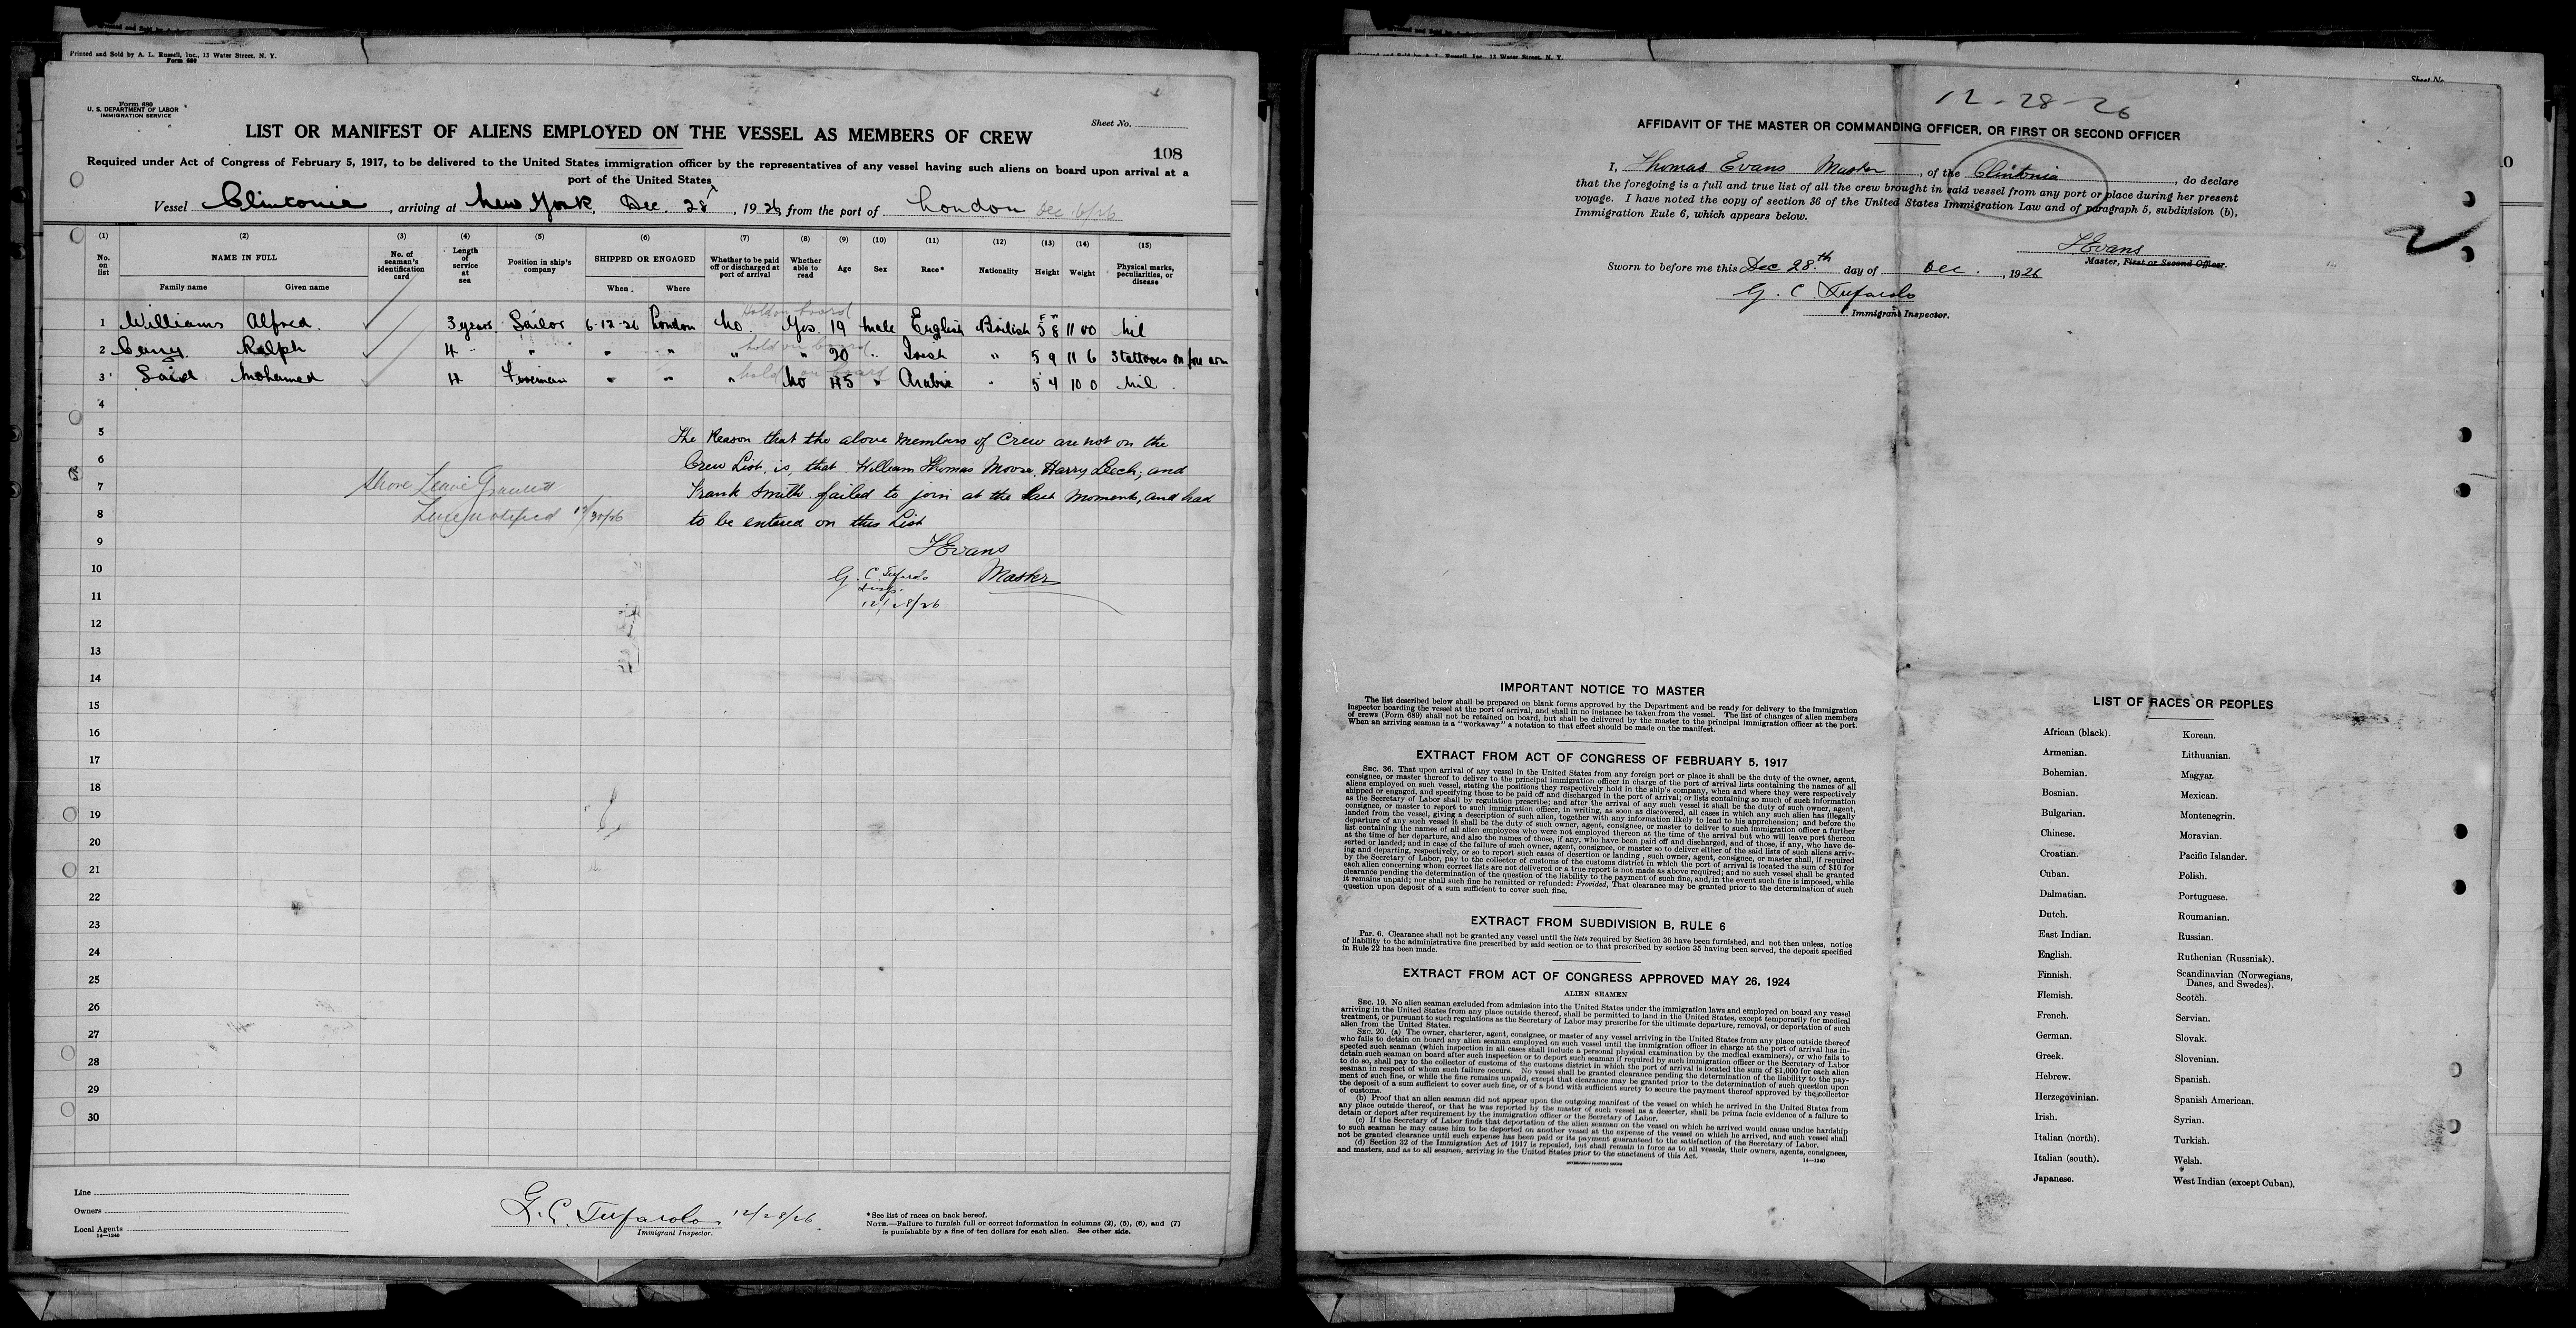 Printed and Sold by A. L. Russell, Inc., 13 Water Street, N. Y.
Form 680
Form 680
U. S. DEPARTMENT OF LABOR
IMMIGRATION SERVICE
Sheet No.
LIST OR MANIFEST OF ALIENS EMPLOYED ON THE VESSEL AS MEMBERS OF CREW
108
Required under Act of Congress of February 5, 1917, to be delivered to the United States immigration officer by the representatives of any vessel having such aliens on board upon arrival at a
port of the United States
Vessel Clintonia, arriving at New York, Dec. 28, 1926 from the port of London Dec 6/26
(1) (2) (3) (4) (5) (6) (7) (8) (9) (10) (11) (12) (13) (14) (15)
No. on list
NAME IN FULL
Family name Given name
No. of seaman's identification card
Length of service at sea
Position in ship's company
SHIPPED OR ENGAGED
When Where
Whether to be paid off or discharged at port of arrival
Whether able to read
Age
Sex
Race*
Nationality
Height
Weight
Physical marks, peculiarities, or disease
Hold on board
1 Williams Alfred. 3 years Sailor 6-12-26 London No. Yes. 19 Male English British 5 8 11 00 Nil
hold on board
2 Ralph 4 " " " " " " 20 " Irish " 5 9 11 6 3 tattoos on fore arm
hold on board
3 Said Mohamed 4 Fireman " " " No 45 " Arabia " 5 4 10 0 Nil.
4
5
The Reason that the above Members of Crew are not on the
6
Crew List, is that William Thomas Moore, Harry Leech, and
7
Shore Leave Granted
Frank Smith failed to join at the last moment, and had
8
Line notified 12/30/26
to be entered on this List
9
TEvans
10
G. C. Tufarolo Master
Insp.
11
12/28/26
12
13
14
15
16
17
18
19
20
21
22
23
24
25
26
27
28
29
30
Line
Owners
Local Agents
14—1240
G. C. Tufarolo 12/28/26
Immigrant Inspector.
* See list of races on back hereof.
NOTE.—Failure to furnish full or correct information in columns (2), (5), (6), and (7)
is punishable by a fine of ten dollars for each alien. See other side.
Sheet No.
12-28-26
AFFIDAVIT OF THE MASTER OR COMMANDING OFFICER, OR FIRST OR SECOND OFFICER
I, Thomas Evans Master, of the Clintonia, do declare
that the foregoing is a full and true list of all the crew brought in said vessel from any port or place during her present
voyage. I have noted the copy of section 36 of the United States Immigration Law and of paragraph 5, subdivision (b),
Immigration Rule 6, which appears below.
TEvans
Master, First or Second Officer.
2
Sworn to before me this Dec 28th day of Dec., 1926
G. C. Tufarolo
Immigrant Inspector.
IMPORTANT NOTICE TO MASTER
The list described below shall be prepared on blank forms approved by the Department and be ready for delivery to the immigration
inspector boarding the vessel at the port of arrival, and shall in no instance be taken from the vessel. The list of changes of alien members
of crews (Form 689) shall not be retained on board, but shall be delivered by the master to the principal immigration officer at the port.
When an arriving seaman is a "workaway" a notation to that effect should be made on the manifest.
EXTRACT FROM ACT OF CONGRESS OF FEBRUARY 5, 1917
SEC. 36. That upon arrival of any vessel in the United States from any foreign port or place it shall be the duty of the owner, agent,
consignee, or master thereof to deliver to the principal immigration officer in charge of the port of arrival lists containing the names of all
aliens employed on such vessel, stating the positions they respectively hold in the ship's company, when and where they were respectively
shipped or engaged, and specifying those to be paid off and discharged in the port of arrival; or lists containing so much of such information
as the Secretary of Labor shall by regulation prescribe; and after the arrival of any such vessel it shall be the duty of such owner, agent,
consignee, or master to report to such immigration officer, in writing, as soon as discovered, all cases in which any such alien has illegally
landed from the vessel, giving a description of such alien, together with any information likely to lead to his apprehension; and before the
departure of any such vessel it shall be the duty of such owner, agent, consignee, or master to deliver to such immigration officer a further
list containing the names of all alien employees who were not employed thereon at the time of the arrival but who will leave port thereon
at the time of her departure, and also the names of those, if any, who have been paid off and discharged, and of those, if any, who have de-
serted or landed; and in case of the failure of such owner, agent, consignee, or master so to deliver either of the said lists of such aliens arriv-
ing and departing, respectively, or so to report such cases of desertion or landing, such owner, agent, consignee, or master shall, if required
by the Secretary of Labor, pay to the collector of customs of the customs district in which the port of arrival is located the sum of $10 for
each alien concerning whom correct lists are not delivered or a true report is not made as above required; and no such vessel shall be granted
clearance pending the determination of the question of the liability to the payment of such fine, and, in the event such fine is imposed, while
it remains unpaid; nor shall such fine be remitted or refunded: Provided, That clearance may be granted prior to the determination of such
question upon deposit of a sum sufficient to cover such fine.
EXTRACT FROM SUBDIVISION B, RULE 6
Par. 6. Clearance shall not be granted any vessel until the lists required by Section 36 have been furnished, and not then unless, notice
of liability to the administrative fine prescribed by said section or to that prescribed by section 35 having been served, the deposit specified
in Rule 22 has been made.
EXTRACT FROM ACT OF CONGRESS APPROVED MAY 26, 1924
ALIEN SEAMEN
SEC. 19. No alien seaman excluded from admission into the United States under the immigration laws and employed on board any vessel
arriving in the United States from any place outside thereof, shall be permitted to land in the United States, except temporarily for medical
treatment, or pursuant to such regulations as the Secretary of Labor may prescribe for the ultimate departure, removal, or deportation of such
alien from the United States.
SEC. 20. (a) The owner, charterer, agent, consignee, or master of any vessel arriving in the United States from any place outside thereof
who fails to detain on board any alien seaman employed on such vessel until the immigration officer in charge at the port of arrival has in-
spected such seaman (which inspection in all cases shall include a personal physical examination by the medical examiners), or who fails to
detain such seaman on board after such inspection or to deport such seaman if required by such immigration officer or the Secretary of Labor
to do so, shall pay to the collector of customs of the customs district in which the port of arrival is located the sum of $1,000 for each alien
seaman in respect of whom such failure occurs. No vessel shall be granted clearance pending the determination of the liability to the pay-
ment of such fine, or while the fine remains unpaid, except that clearance may be granted prior to the determination of such question upon
the deposit of a sum sufficient to cover such fine, or of a bond with sufficient surety to secure the payment thereof approved by the collector
of customs.
(b) Proof that an alien seaman did not appear upon the outgoing manifest of the vessel on which he arrived in the United States from
any place outside thereof, or that he was reported by the master of such vessel as a deserter, shall be prima facie evidence of a failure to
detain or deport after requirement by the immigration officer or the Secretary of Labor.
(c) If the Secretary of Labor finds that deportation of the alien seaman on the vessel on which he arrived would cause undue hardship
to such seaman he may cause him to be deported on another vessel at the expense of the vessel on which he arrived, and such vessel shall
not be granted clearance until such expense has been paid or its payment guaranteed to the satisfaction of the Secretary of Labor.
(d) Section 32 of the Immigration Act of 1917 is repealed, but shall remain in force as to all vessels, their owners, agents, consignees,
and masters, and as to all seamen, arriving in the United States prior to the enactment of this Act.
14—1240
GOVERNMENT PRINTING OFFICE
LIST OF RACES OR PEOPLES
African (black). Korean.
Armenian. Lithuanian.
Bohemian. Magyar.
Bosnian. Mexican.
Bulgarian. Montenegrin.
Chinese. Moravian.
Croatian. Pacific Islander.
Cuban. Polish.
Dalmatian. Portuguese.
Dutch. Roumanian.
East Indian. Russian.
English. Ruthenian (Russniak).
Finnish. Scandinavian (Norwegians,
Danes, and Swedes).
Flemish. Scotch.
French. Servian.
German. Slovak.
Greek. Slovenian.
Hebrew. Spanish.
Herzegovinian. Spanish American.
Irish. Syrian.
Italian (north). Turkish.
Italian (south). Welsh.
Japanese. West Indian (except Cuban).